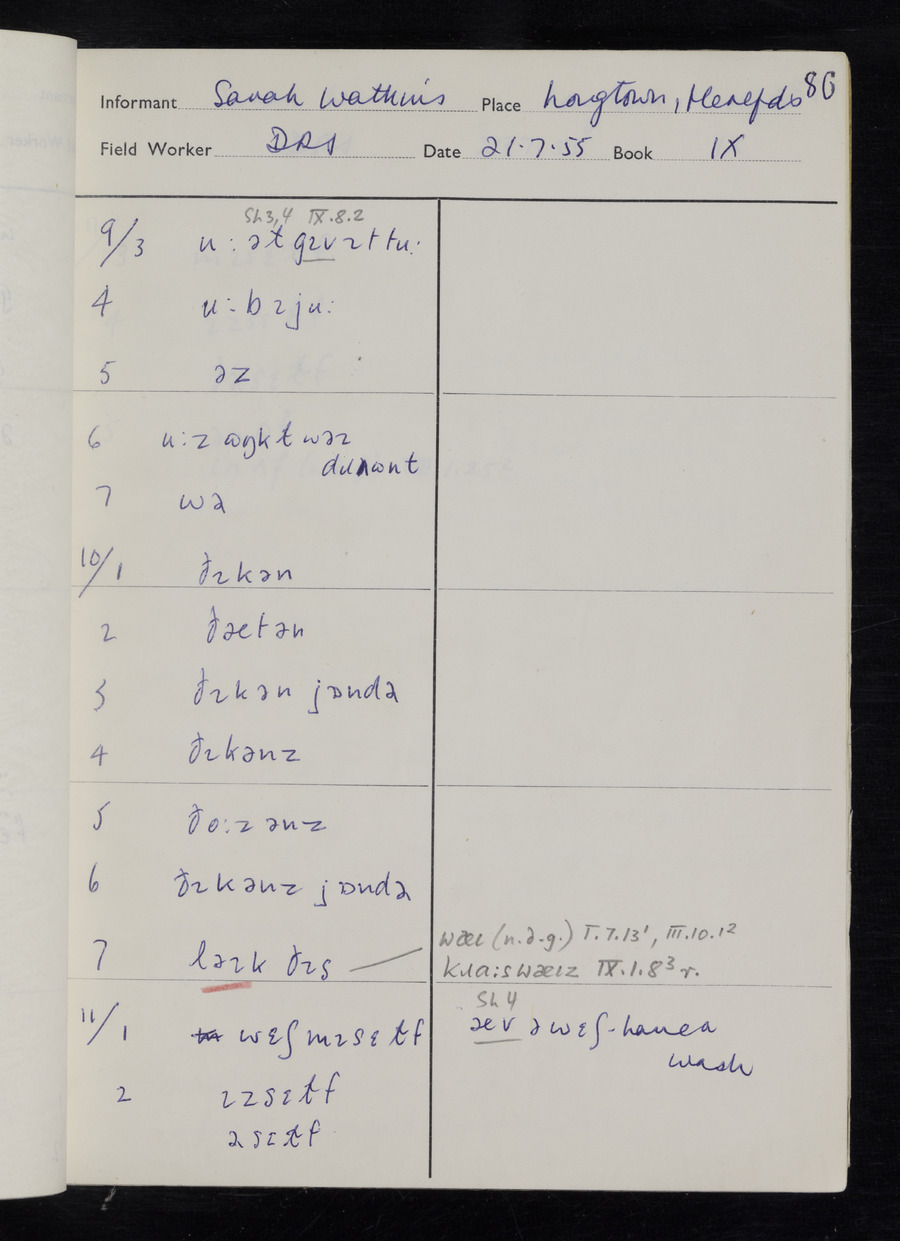 86
Informant Sarah Watkins Place Longtown, Herefds
Field Worker DRS Date 21.7.55 Book IX
Sh3,4 IX.8.2
9/3 u:əɫ gɪvɪttu:
4 u:bɪju:
5 əz
6 u:z
7 wə
10/1 ðɪkən
2 ðætən
3 ðɪkən jɒndə
4 ðɪkənz
5 ðo:zənz
6 ðɪkənz jɒndə
7 ləɪk ðɪs
wæɪ (n.d.g.) I.7.13¹, III.10.12
IX.1.8³ r.
11/1 wɛʃ mɪsɛɫf
Sh 4
æv ə wɛʃ - have a
wash
2 ɪzsɛɫf
əsɛɫf